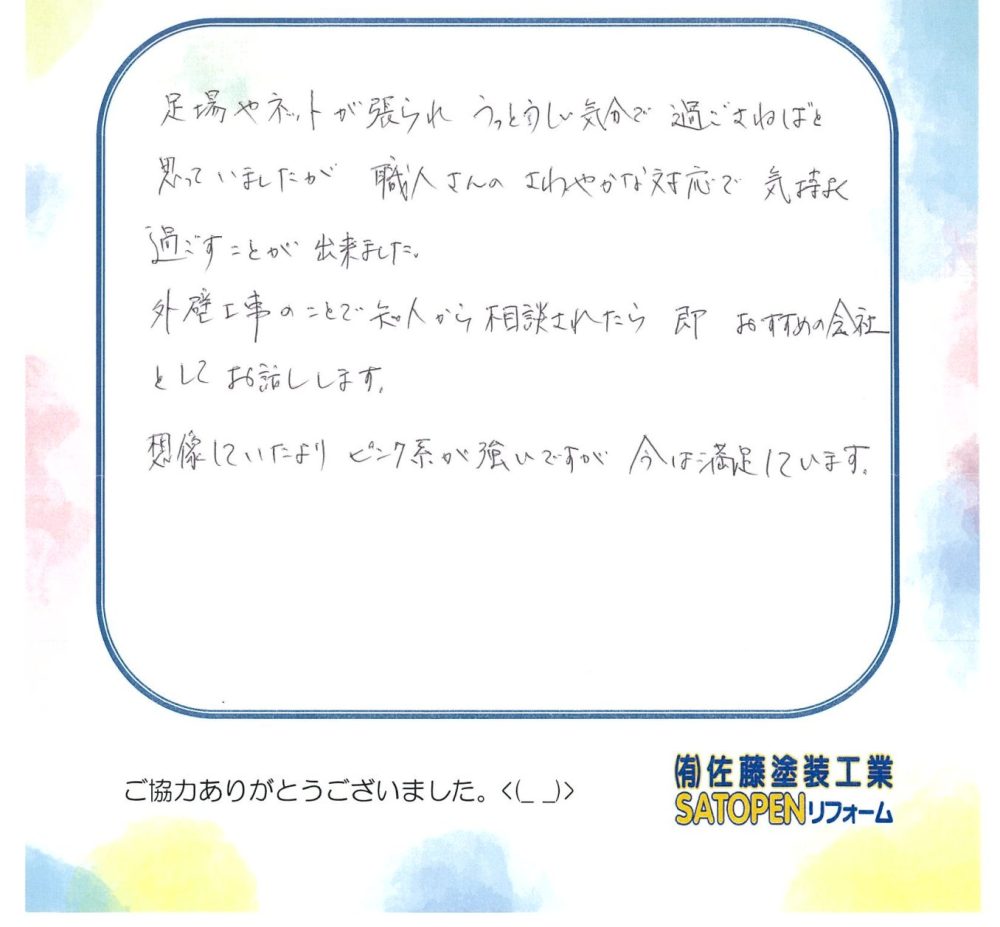 足場やネットが張られ うっとうしい気分で 過ごさねばと
思っていましたが 職人さんの さわやかな対応で 気持よく
過ごすことが 出来ました。
外壁工事のことで知人から相談されたら 即 おすすめの会社
として お話しします。
想像していたより ピンク系が強いですが 今は満足しています。
ご協力ありがとうございました。<(_ _)>
(有)佐藤塗装工業
SATOPENリフォーム